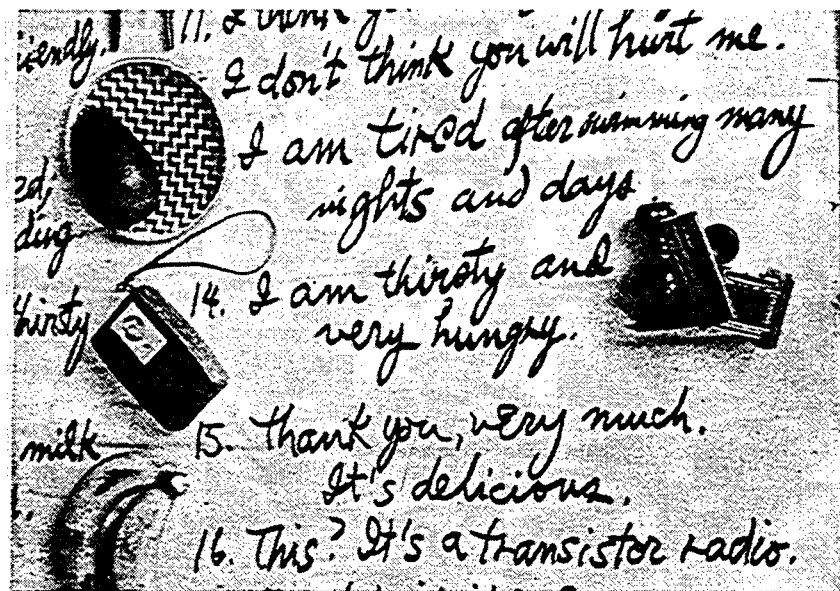 iendly.
11. I think yo
I don't think you will hurt me.
I am tired after swimming many
nights and days
ed,
dug
14. I am thirsty and
hirsty
very hungry.
15. Thank you, very much.
milk
It's delicious.
16. This? It's a transistor radio.